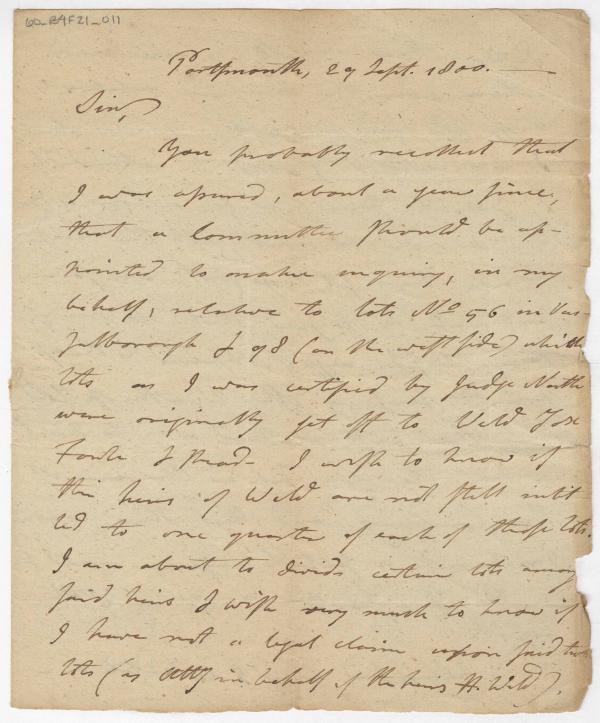 60_B4F21_011
Portsmouth, 29 Sept. 1800.
Sir,
You probably recollect that
I was assured, about a year since,
that a Committee should be ap-
pointed to make inquiry, in my
behalf, relative to lots No 56 in Vas-
salborough & 98 (on the west side) which
lots as I was certified by Judge North
were originally set off to Weld Fox
Fowle & Read I wish to know if
the heirs of Weld are not still intit
led to one quarter of each of these lots.
I am about to divide certain lots among
said heirs & wish very much to know if
I have not a legal claim upon said two
lots (as Atty in behalf of the heirs Weld).